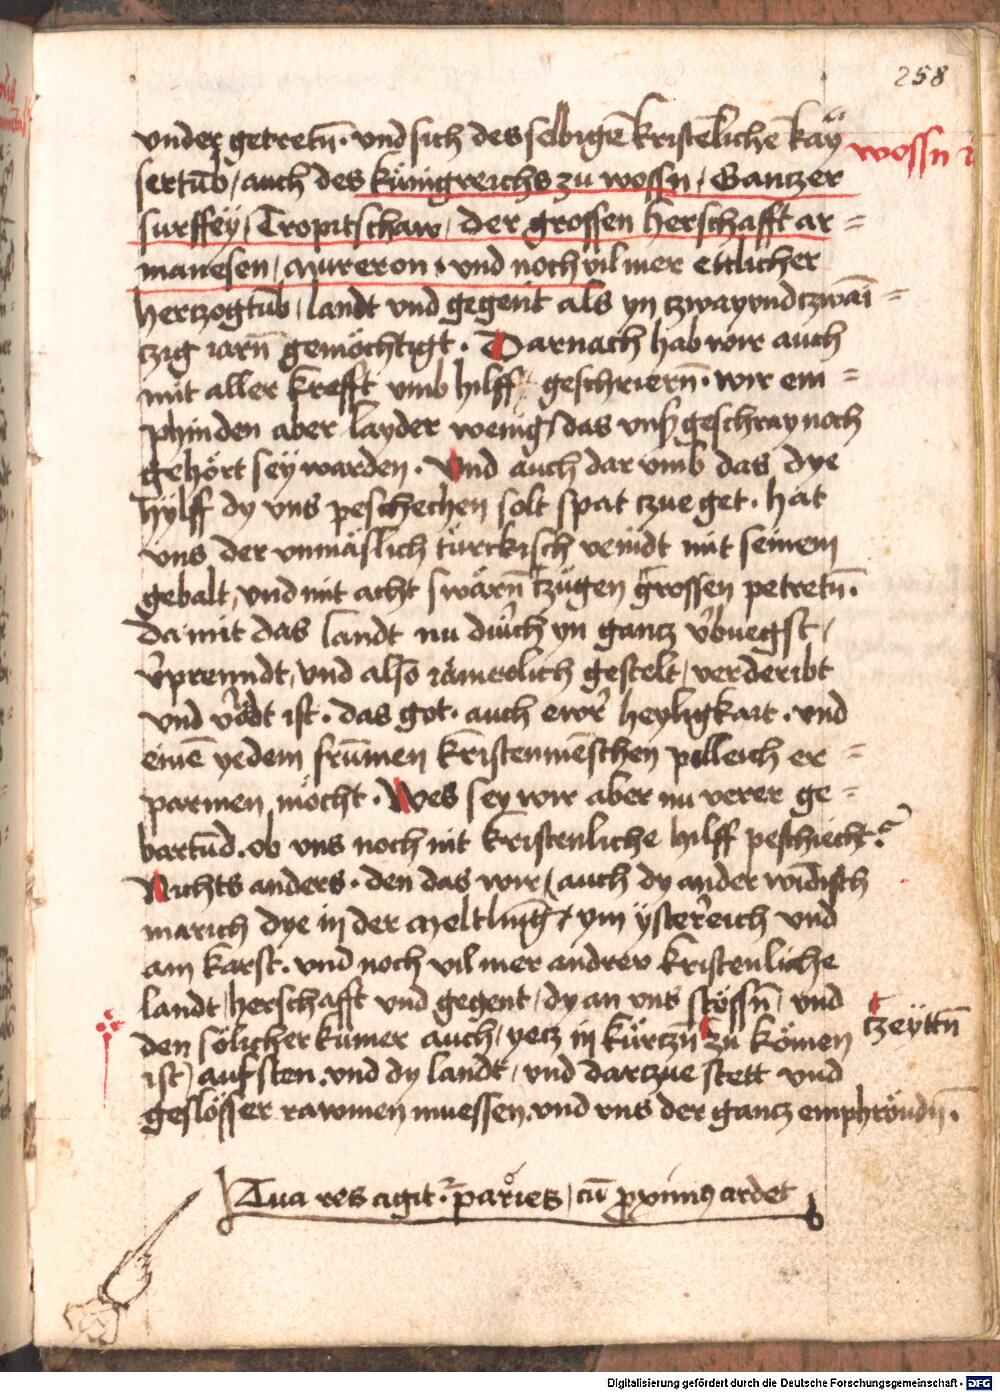 258
vnder getretn̄. vnd sich des selbigē kristēliche kaÿ
wossn
sertūb / auch des künigreichs zu wossn / Gantzer
surffeÿ / Tropitschaw / der grossen herschafft ar =
manesen / Mureron. vnd noch vil mer ettlicher
hertzogtūb / landt vnd gegent als yn tzwayundtzwāī =
tzig iarn̄ gemöchtigt. Darnach hab wir auch
mit aller krefft vmb hilff / geschriern̄. wir em =
phinden aber layder wenig / das vnß geschray noch
gehört seÿ warden. Vnd auch dar vmb das dye
hÿlff dy vns peschechen solt spat tzue get. hat
vns der vnmäslich türckisch veindt mit seinem
gebalt, vnd mit acht swärn̄ tzügen grossen petretn̄.
da mit das landt nu durch yn gantz v̾buegst /
v̾prenndt, vnd also iämerlich gestelt / verderibt
vnd v̾ödt ist. das got. auch ewr̾ heyligkait. vnd
einē yedem frūmen kristenmēschen pilleich er =
parmen möcht. Wes sey wir aber nu verer ge =
bartūd. ob vns noch nit kristenliche hilff peschiecht?
Nichts anders. den das wir / auch dy ander windisch
marich dye in der Meltling / ym ÿster̾eich vnd
am karst. vnd noch vil mer andrev kristenliche
landt / herschafft vnd gegent / dy an vns stössn̄ / vnd
den sölicher kumer auch / yetz in kürtzn̄ zu kömen
tzeÿttn̄
ist / auf sten. vnd dy landt / vnd dartzue stett vnd
geslösser rawmen muessen. vnd vns der gantz emphröudn̄.
Tua res agit᷑ paries / cū ꝓximꝰ ardet
Digitalisierung gefördert durch die Deutsche Forschungsgemeinschaft - DFG